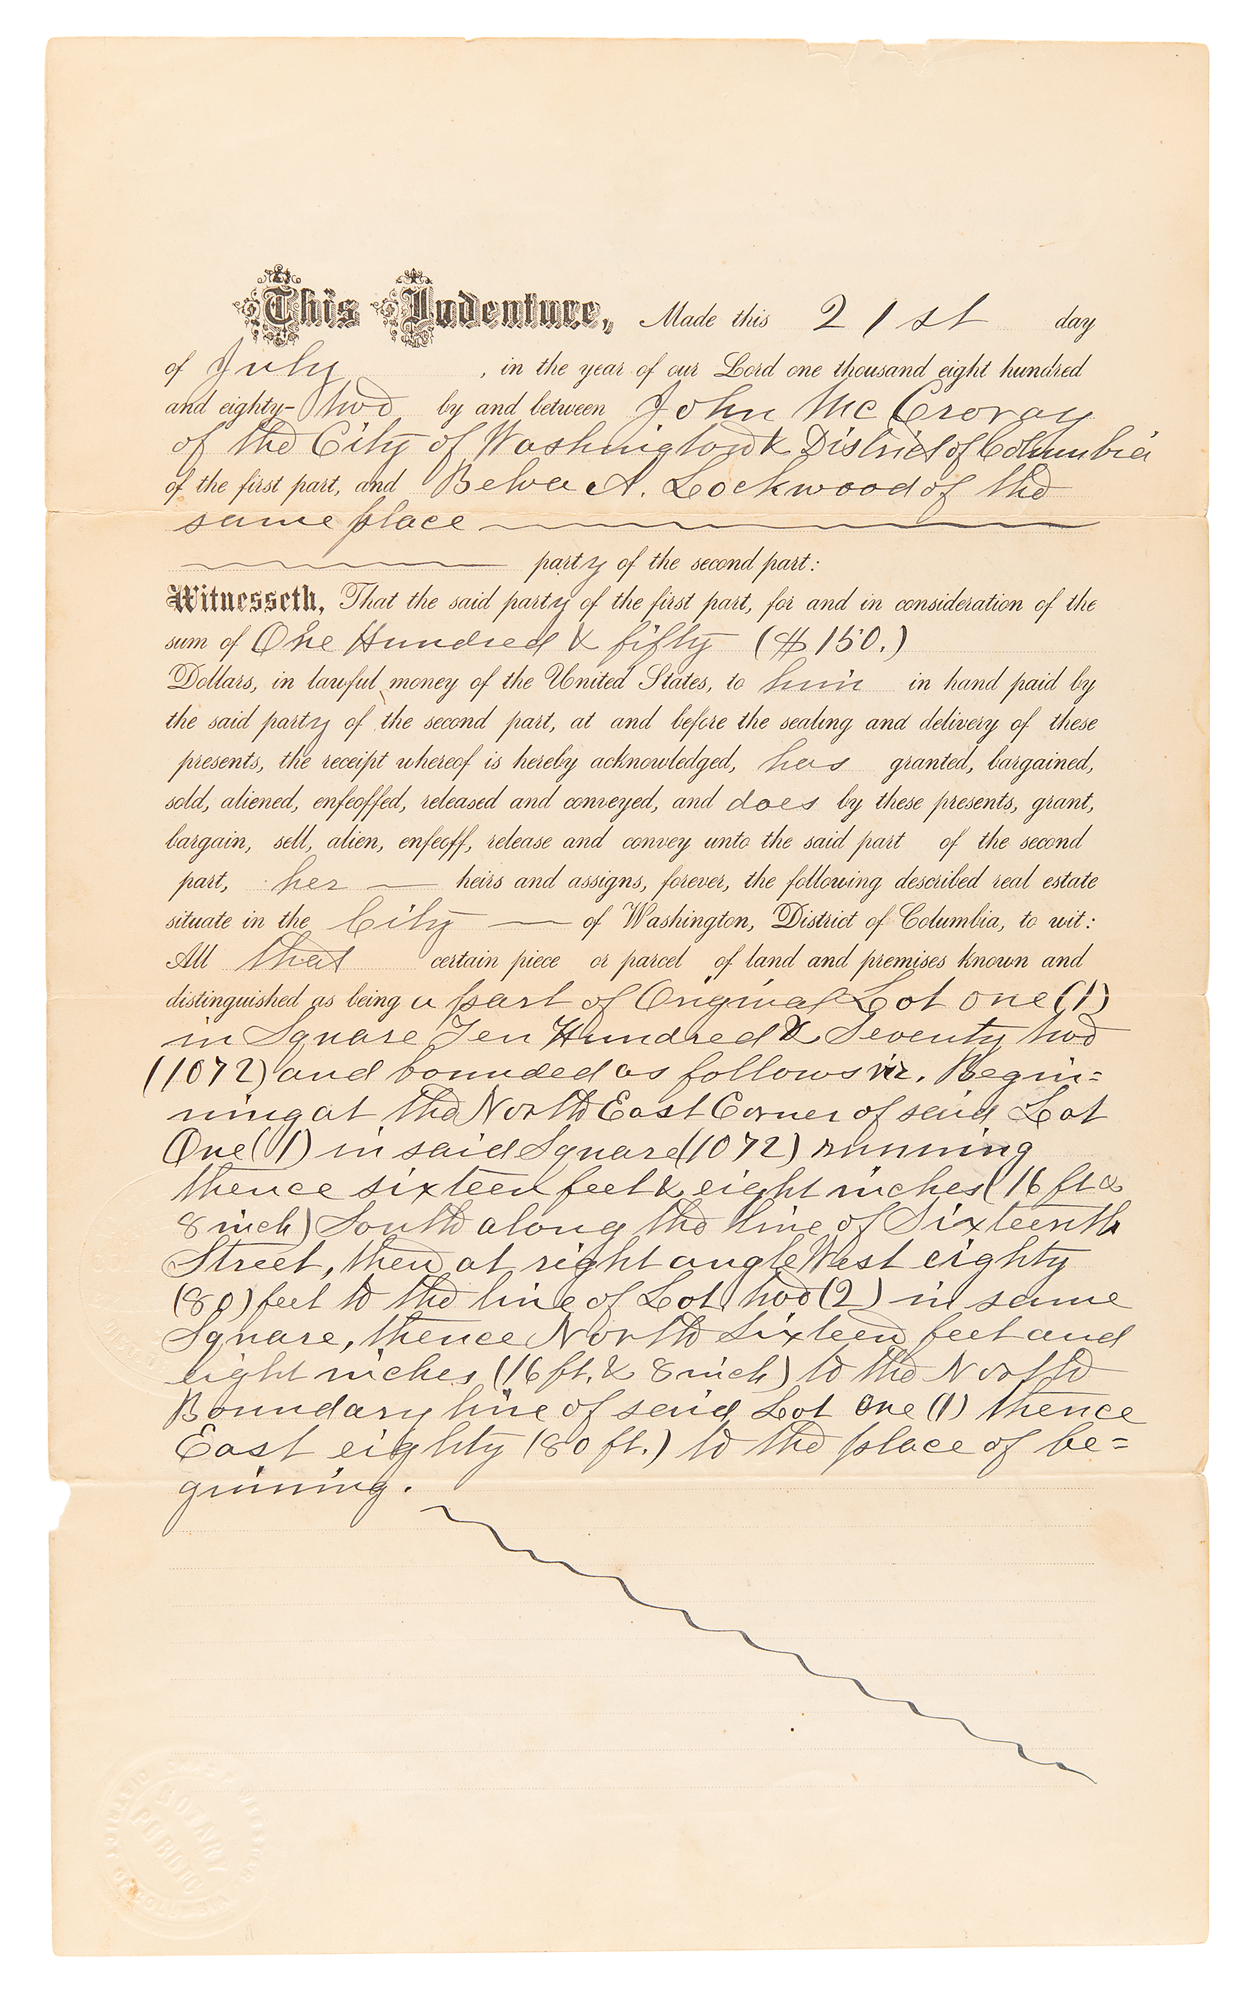 This Indenture, Made this 21st day
of July , in the year of our Lord one thousand eight hundred
and eighty-two by and between John McCrovay
of the City of Washington & District of Columbia
of the first part, and Belva A. Lockwood of the
same place
party of the second part:
Witnesseth, That the said party of the first part, for and in consideration of the
sum of One Hundred & fifty ($150.)
Dollars, in lawful money of the United States, to him in hand paid by
the said party of the second part, at and before the sealing and delivery of these
presents, the receipt whereof is hereby acknowledged, has granted, bargained,
sold, aliened, enfeoffed, released and conveyed, and does by these presents, grant,
bargain, sell, alien, enfeoff, release and convey unto the said part of the second
part, her heirs and assigns, forever, the following described real estate
situate in the City of Washington, District of Columbia, to wit:
All that certain piece or parcel of land and premises known and
distinguished as being a part of Original Lot one (1)
in Square Ten Hundred & Seventy two
(1072) and bounded as follows viz. Begin=
ning at the North East Corner of said Lot
One (1) in said Square (1072) running
thence sixteen feet & eight inches (16 ft &
8 inch) South along the line of Sixteenth
Street, then at right angle West eighty
(80) feet to the line of Lot two (2) in same
Square, thence North sixteen feet and
eight inches (16 ft. & 8 inch) to the North
Boundary line of said Lot One (1) thence
East eighty (80 ft.) to the place of be=
ginning.
NOTARY
PUBLIC